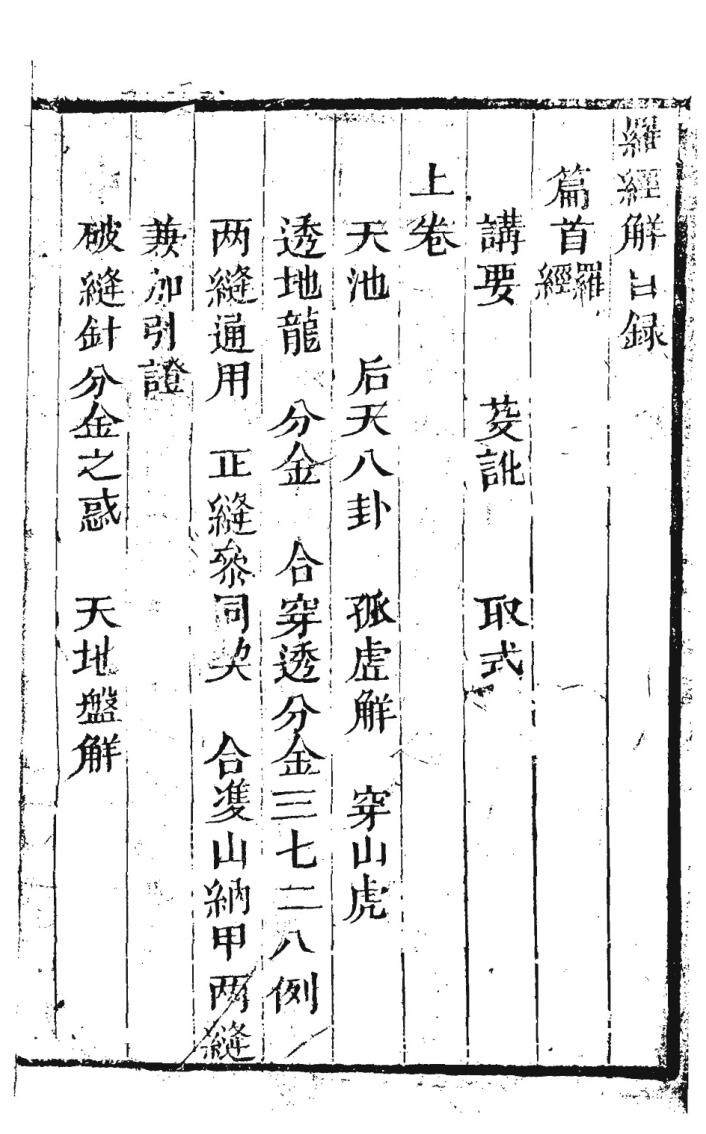 羅經解目録
篇首羅經
講要　茭訛　取式
上卷
天池　后天八卦　孤虛解　穿山虎
透地龍　分金　合穿透分金三七二八例
两縫通用　正縫叅同契　合䨇山納甲两縫
兼加引證
破縫針分金之惑　天地盤解